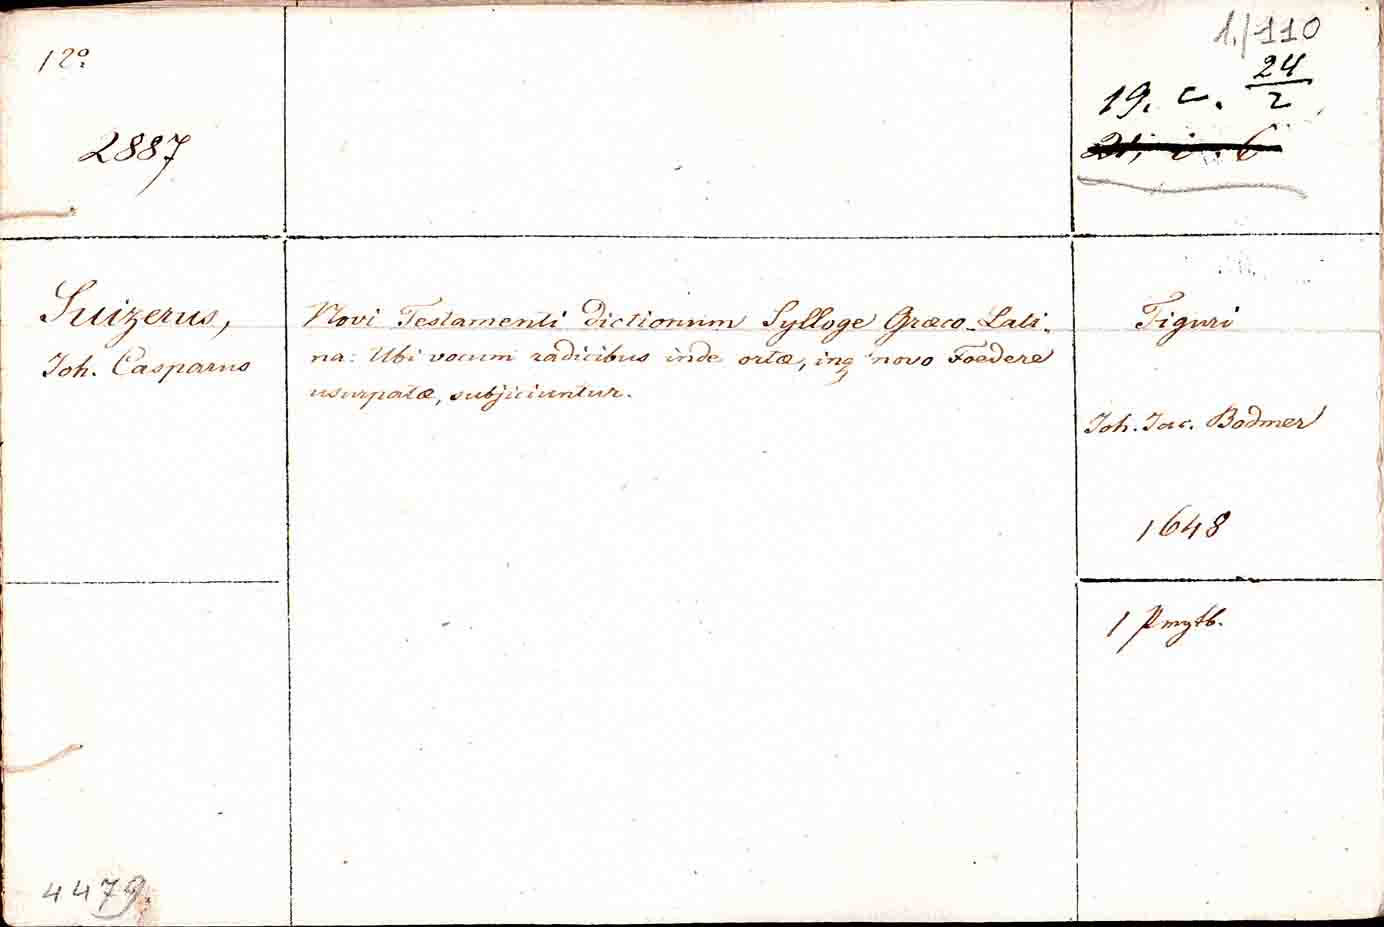 12º
2887
1./110
19. c. 24/2
21, i. 6
Suizerus,
Joh. Casparus
Novi Testamenti dictionum Sylloge Græco-Lati-
na: Ubi vocum radicibus inde ortæ, inq novo Foedere
usurpatæ, subjiciuntur.
Tiguri
Joh. Jac. Bodmer
1648
1 Pmgtb.
4479.